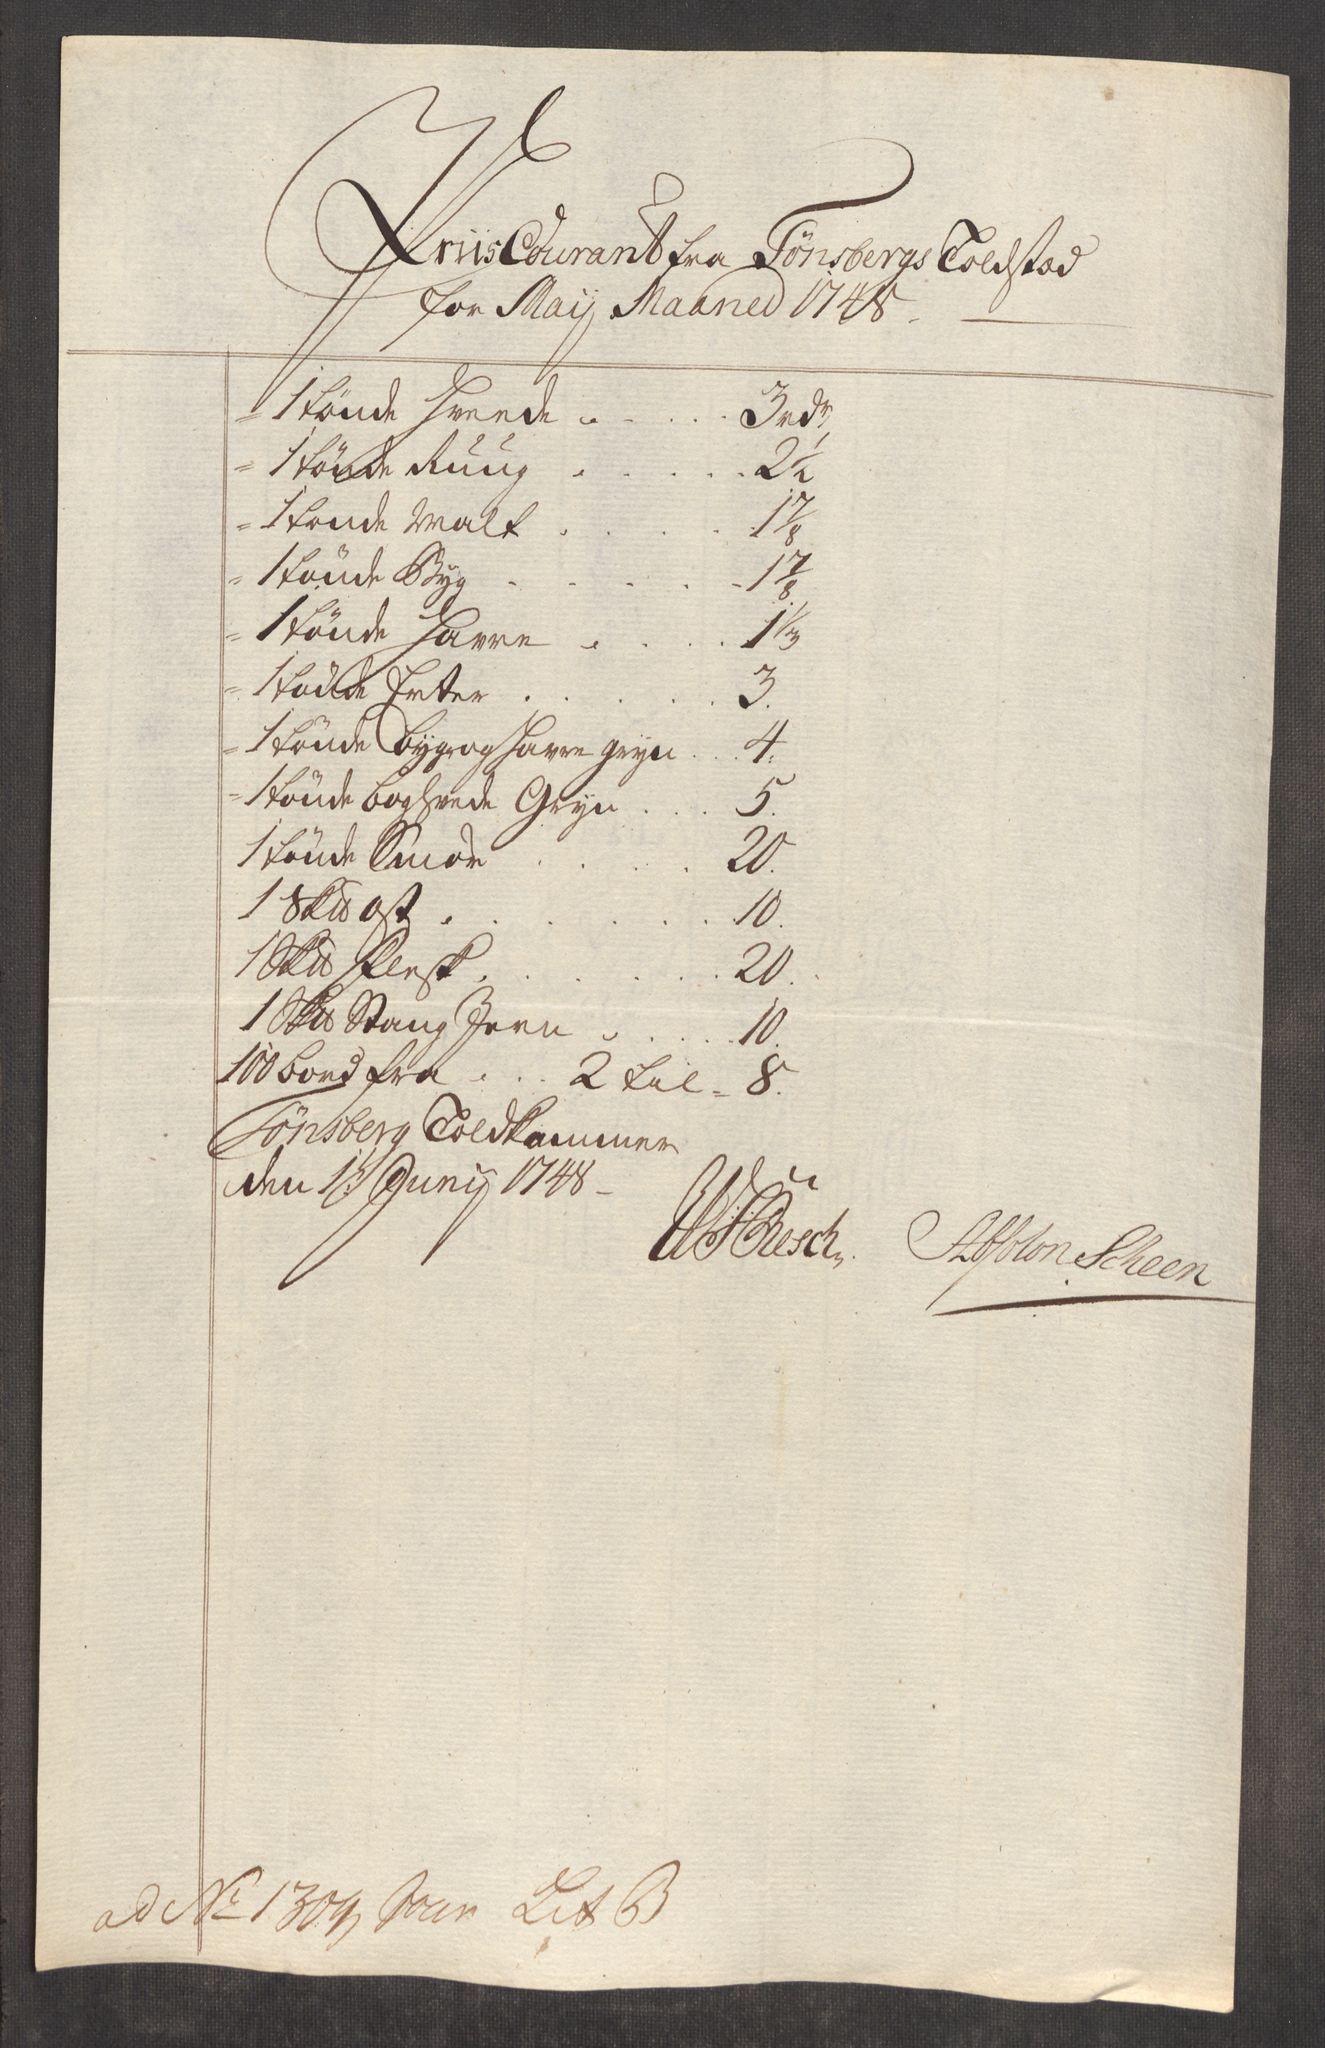 Priis Courant fra Tönsbergs Toldstød
for Maij Maaned 1748
1 tönde Hveede . . . . 3 rdr
1 tönde Ruug . . . . . 2 1/2
1 tönde Malt . . . . 1 7/8
1 tönde Byg . . . . . 1 7/8
1 tönde Havre . . . . 1 1/3
1 tönde Erter . . . . . 3.
1 tönde byg og Havre gryn . . . 4.
1 tönde boghvede Gryn . . . 5.
1 tönde Smör . . . . 20.
1 Skđ ost . . . . . . . 10.
1 Skđ flesk . . . . . . 20.
1 Skđ Stang Jern . . . . . 10.
100 bord fra . . . 2 til 8.
Tönsberg Toldkammer
den 1t Junij 1748
Resch Absolon Scheen
ad No 1309 Lit B